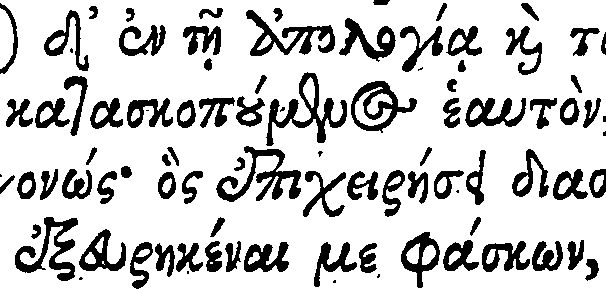 δ' ἐν τῇ ἀπολογίᾳ καὶ
κατασκοπούμενος ἑαυτὸν,
ονώς· ὃς ἐπιχειρήσει διασ
ἐξευρηκέναι με φάσκων,